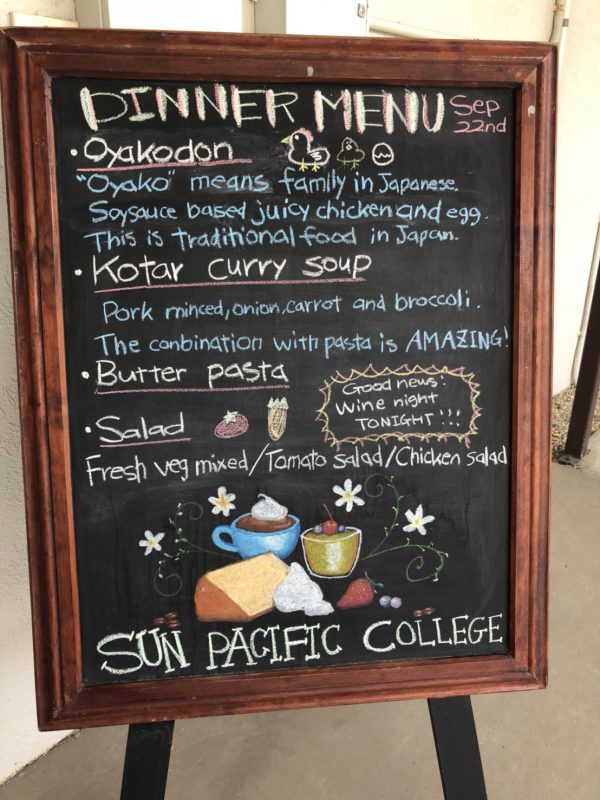 DINNER MENU Sep 22nd
• Oyakodon
"Oyako" means family in Japanese.
Soysauce based juicy chicken and egg.
This is traditional food in Japan.
• Kotar curry soup
Pork minced, onion, carrot and broccoli.
The conbination with pasta is AMAZING!
• Butter pasta
Good news!
Wine night
TONIGHT!!!
• Salad
Fresh veg mixed/Tomato salad/Chicken salad
SUN PACIFIC COLLEGE